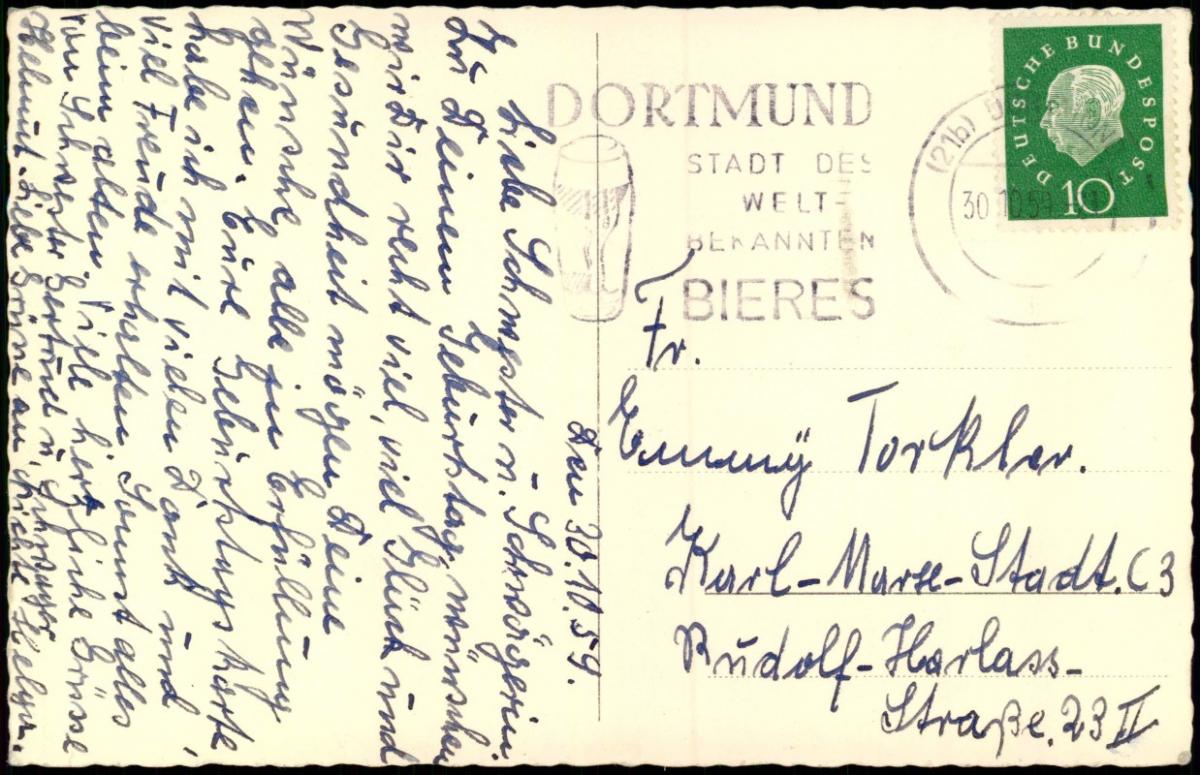 Den 30.10.59.
Liebe Schwester u. Schwägerin
Zu Deinem Geburtstag wünschen
wir Dir recht viel, viel Glück und
Gesundheit mögen Deine
Wünsche alle in Erfüllung
gehen. Eure Geburtstagskarte
habe ich mit vielen Dank und
viel Freude erhalten. Sonst alles
beim alten. Viele herzliche Grüsse
von Schwester Gertrud u. Schwager
Helmut. Liebe Grüße an
DORTMUND
STADT DES
WELT-
BEKANNTEN
BIERES
(21b) D
30.10.59
DEUTSCHE BUNDESPOST
10
Fr.
Emmy Torkler.
Karl-Marx-Stadt. C3
Rudolf-Harlass-
Straße. 23 II